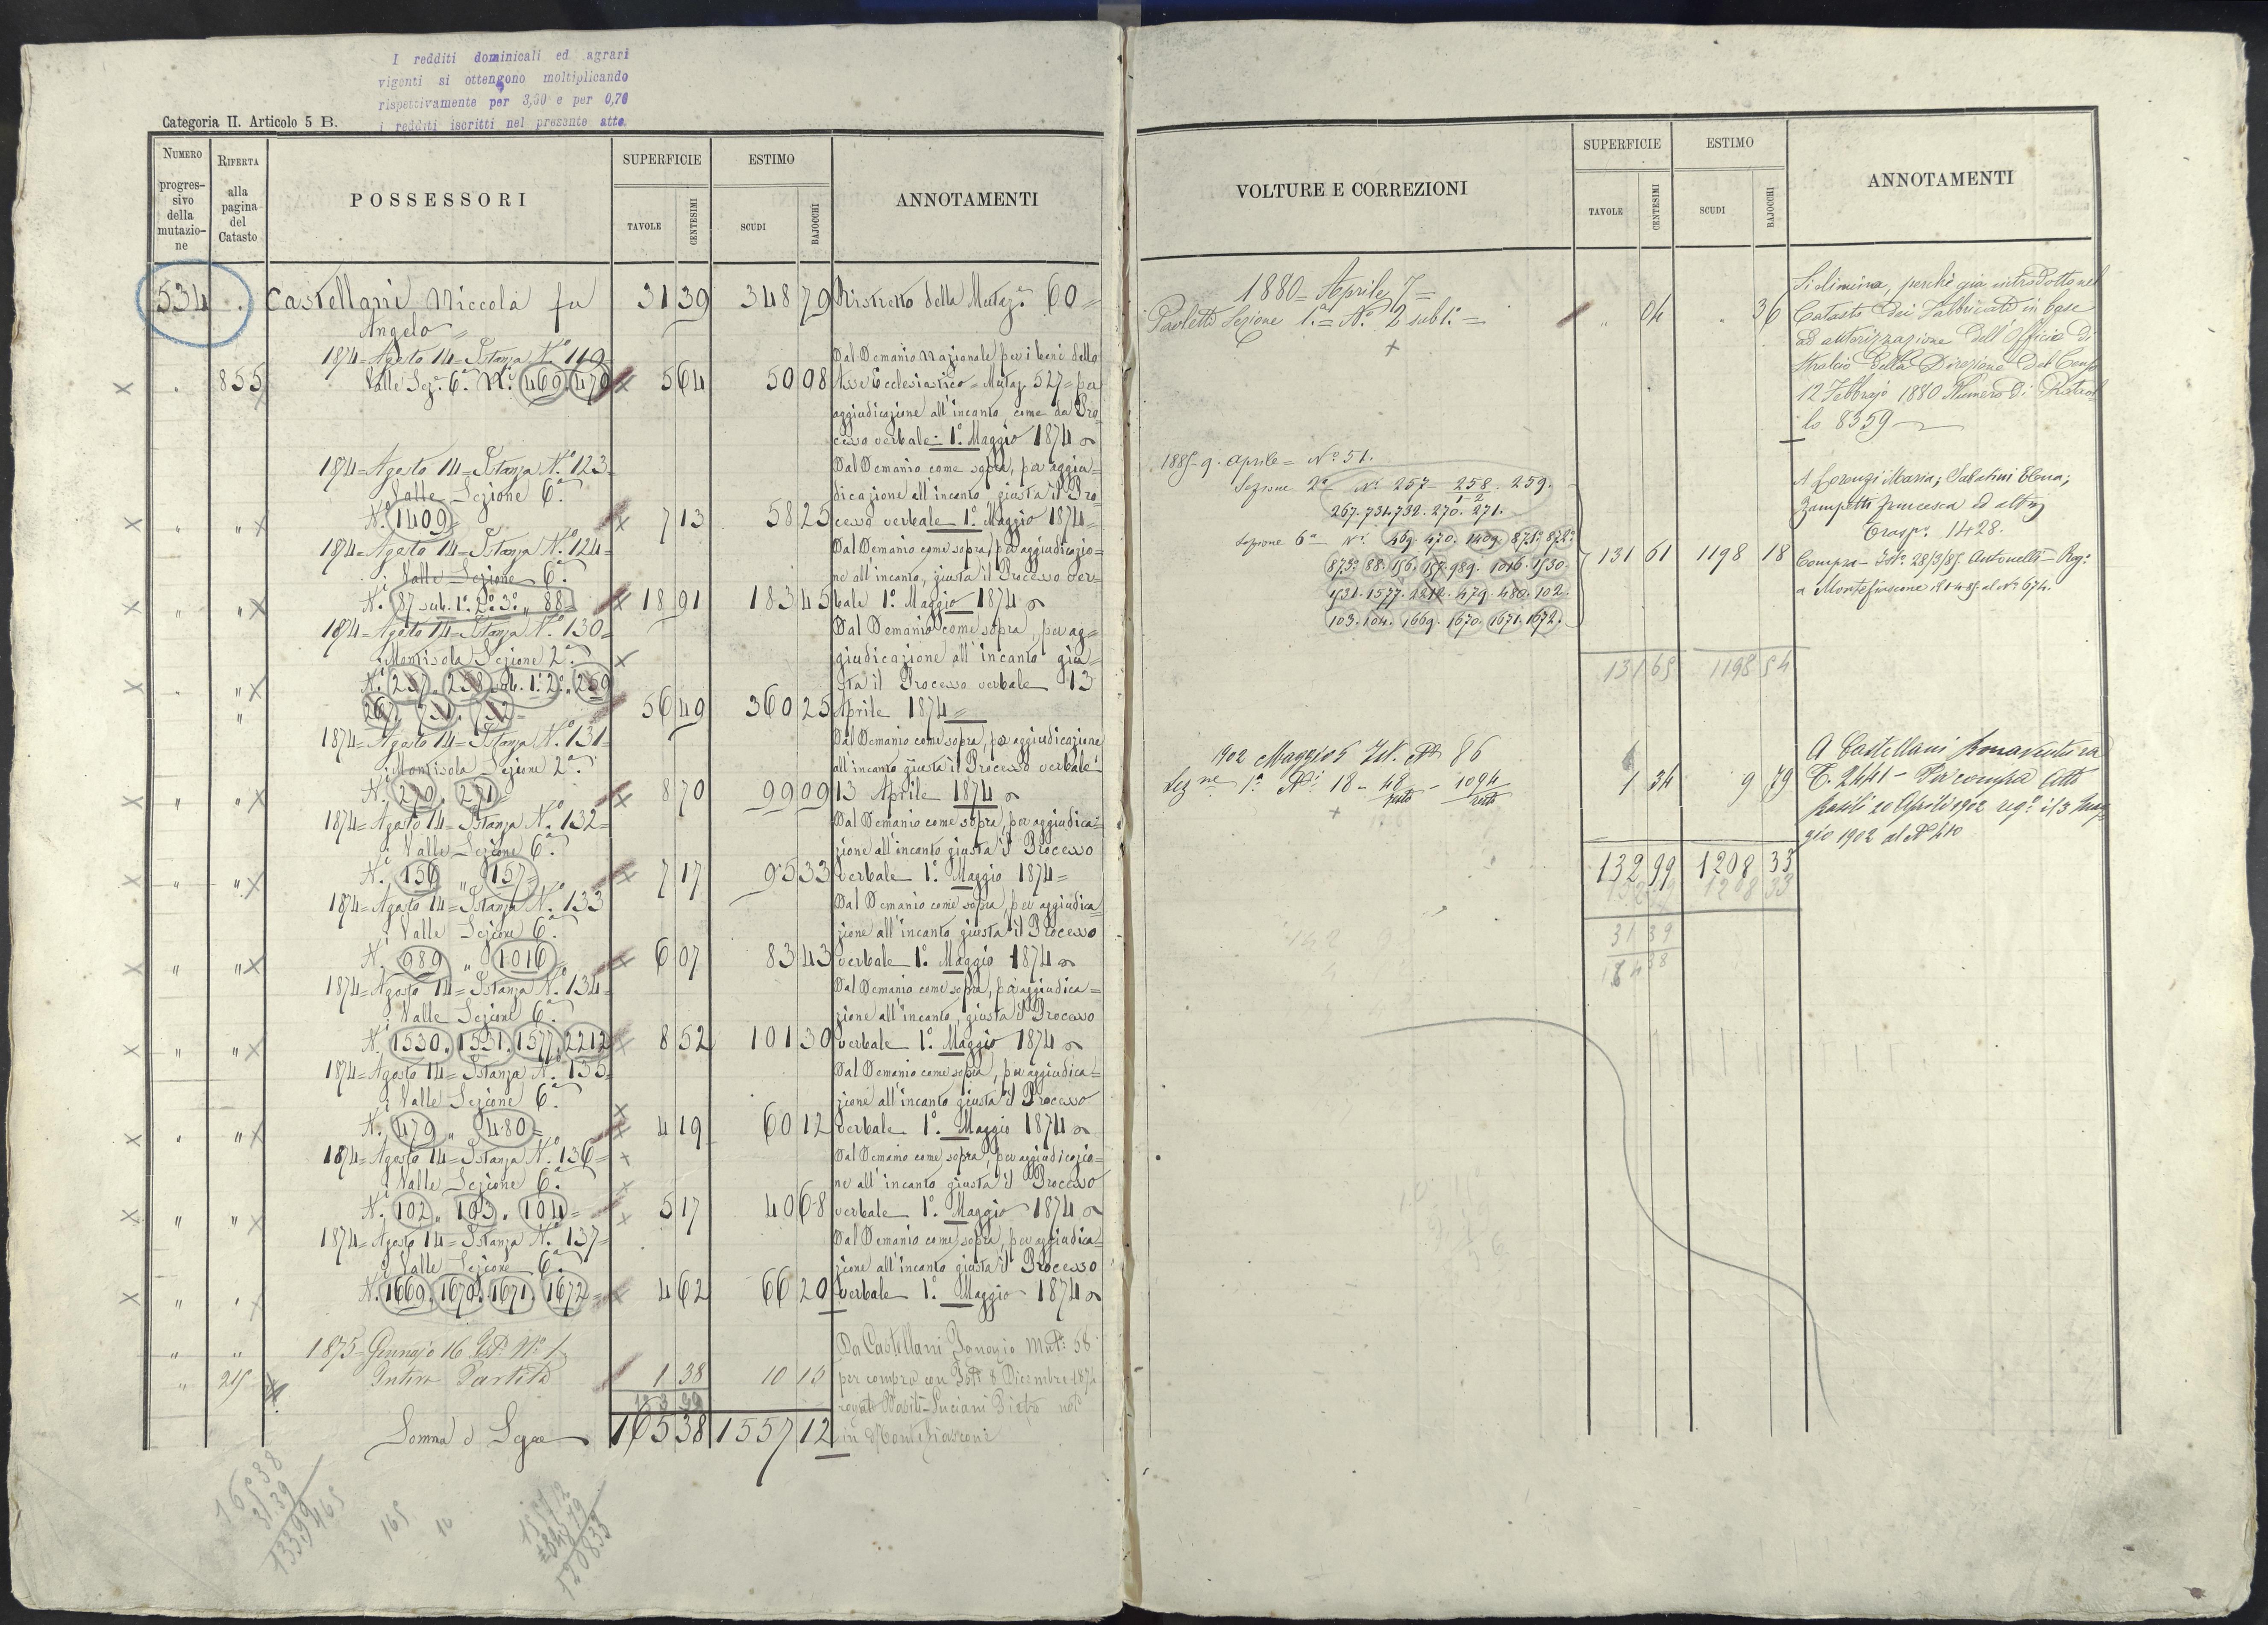 I redditi dominicali ed agrari
vigenti si ottengono moltiplicando
rispettivamente per 3,60 e per 0,70
i redditi iscritti nel presente atto.
Categoria II. Articolo 5 B.
NUMERO progressivo della mutazione
RIFERTA alla pagina del Catasto
POSSESSORI
SUPERFICIE
TAVOLE
CENTESIMI
ESTIMO
SCUDI
BAJOCCHI
ANNOTAMENTI
534 . Castellani Niccola fu 31 39 348 79 Ristretto della Mutaz. 60 =
Angelo =
1874 = Agosto 14 = Istanza N.° 119 = Dal Demanio Nazionale per i beni dello
855 Valle Sez. 6.a N.i 469. 470 5 64 50 08 Asse Ecclesiastico = Mutaz. 527 = per
aggiudicazione all'incanto come da Pro
cesso verbale 1.° Maggio 1874
1874 = Agosto 14 = Istanza N.° 123 = Dal Demanio come sopra, per aggiu=
Valle Sezione 6.a dicazione all'incanto giusta il Pro
N.° 1409 = 7 13 58 25 cesso verbale 1.° Maggio 1874 =
1874 = Agosto 14 = Istanza N.° 124 = Dal Demanio come sopra, per aggiudicazio=
Valle Sezione 6.a ne all'incanto, giusta il Processo ver=
N.i 87 sub. 1.° 2.° 3.° „ 88 = 18 91 183 45 bale 1.° Maggio 1874
1874 = Agosto 14 = Istanza N.° 130 = Dal Demanio come sopra, per ag=
Montisola Sezione 2.a giudicazione all'incanto giu=
N.i 257 „ 258 sub. 1.° 2.° „ 259 sta il Processo verbale 13
267. 731. 732 = 56 49 360 25 Aprile 1874 =
1874 = Agosto 14 = Istanza N.° 131 = Dal Demanio come sopra, per aggiudicazione
Montisola Sezione 2.a all'incanto giusta il Processo verbale
N.i 270. 271 = 8 70 99 09 13 Aprile 1874
1874 = Agosto 14 = Istanza N.° 132 = Dal Demanio come sopra, per aggiudica=
Valle Sezione 6.a zione all'incanto giusta il Processo
N.i 156 „ 157 = 7 17 95 33 verbale 1.° Maggio 1874 =
1874 = Agosto 14 = Istanza N.° 133 Dal Demanio come sopra, per aggiudica
Valle Sezione 6.a zione all'incanto giusta il Processo
N.i 989 „ 1016 = 6 07 83 43 verbale 1.° Maggio 1874
1874 = Agosto 14 = Istanza N.° 134 = Dal Demanio come sopra, per aggiudica=
Valle Sezione 6.a zione all'incanto, giusta il Processo
N.i 1530. 1531. 1577. 2212 8 52 101 30 verbale 1.° Maggio 1874
1874 = Agosto 14 = Istanza N.° 135 = Dal Demanio come sopra, per aggiudica=
Valle Sezione 6.a zione all'incanto giusta il Processo
N.i 479 „ 480 = 4 19 60 12 verbale 1.° Maggio 1874
1874 = Agosto 14 = Istanza N.° 136 = Dal Demanio come sopra, per aggiudicazio=
Valle Sezione 6.a ne all'incanto giusta il Processo
N.i 102 „ 103. 104 = 5 17 40 68 verbale 1.° Maggio 1874
1874 = Agosto 14 = Istanza N.° 137 = Dal Demanio come sopra, per aggiudica=
Valle Sezione 6.a zione all'incanto giusta il Processo
N.i 1669. 1670. 1671. 1672 = 4 62 66 20 verbale 1.° Maggio 1874
1875 Gennajo 16 Ist. N.° 1 Da Castellani Ignazio Mut. 58
215 Intera Partita 1 38 10 13 per compra con Ist. 8 Dicembre 1874
133 99 rogato Basili-Luciani Pietro not.
Somma e Segue 165 38 1557 12 in Montefiascone
165 38
31 39
133 99
165
165
10
1557 12
348 79
1208 33
VOLTURE E CORREZIONI
SUPERFICIE
TAVOLE
CENTESIMI
ESTIMO
SCUDI
BAJOCCHI
ANNOTAMENTI
1880 = Aprile 7 =
Paoletti Sezione 1.a = N.° 2 sub 1.° = „ 04 . 36
Si elimina, perchè già introdotto nel
Catasto dei Fabbricati in base
ad autorizzazione dell'Officio di
Stralcio della Direzione del Censo
12 Febbrajo 1880 Numero di Protocol
lo 8359
1885 9. Aprile = N.° 51.
Sezione 2a N.i 257 - 258 1-2. 259.
267. 731. 732. 270. 271.
Sezione 6a N.i 469. 470. 1409. 871. 872.
873. 88. 156. 157. 989. 1016. 1530.
1531. 1577. 2212. 479. 480. 102.
103. 104. 1669. 1670. 1671. 1672.
131 61 1198 18
A Lorenzi Maria; Sabatini Elena;
Zampetti Francesca ed altri
Trasp. 1428.
Compra - Ist. 28/3/85 Antonelli = Reg.
a Montefiascone al N.° 674.
131 65 1198 54
1902 Maggio 5 Ist. N° 86
Sezne 1a N.i 18 - 48 resto - 1094 resto 1 34 9 79
A Castellani Bonaventura
T. 2441 - Per compra atto
Basili 20 Aprile 1902 reg. il 3 Mag
gio 1902 al N°
132 99 1208 33
132 99 1208 33
31 39
164 38